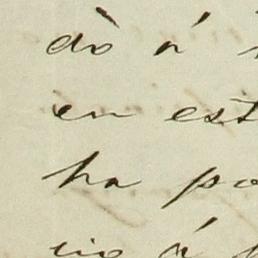 dò á
en est
ha po
á